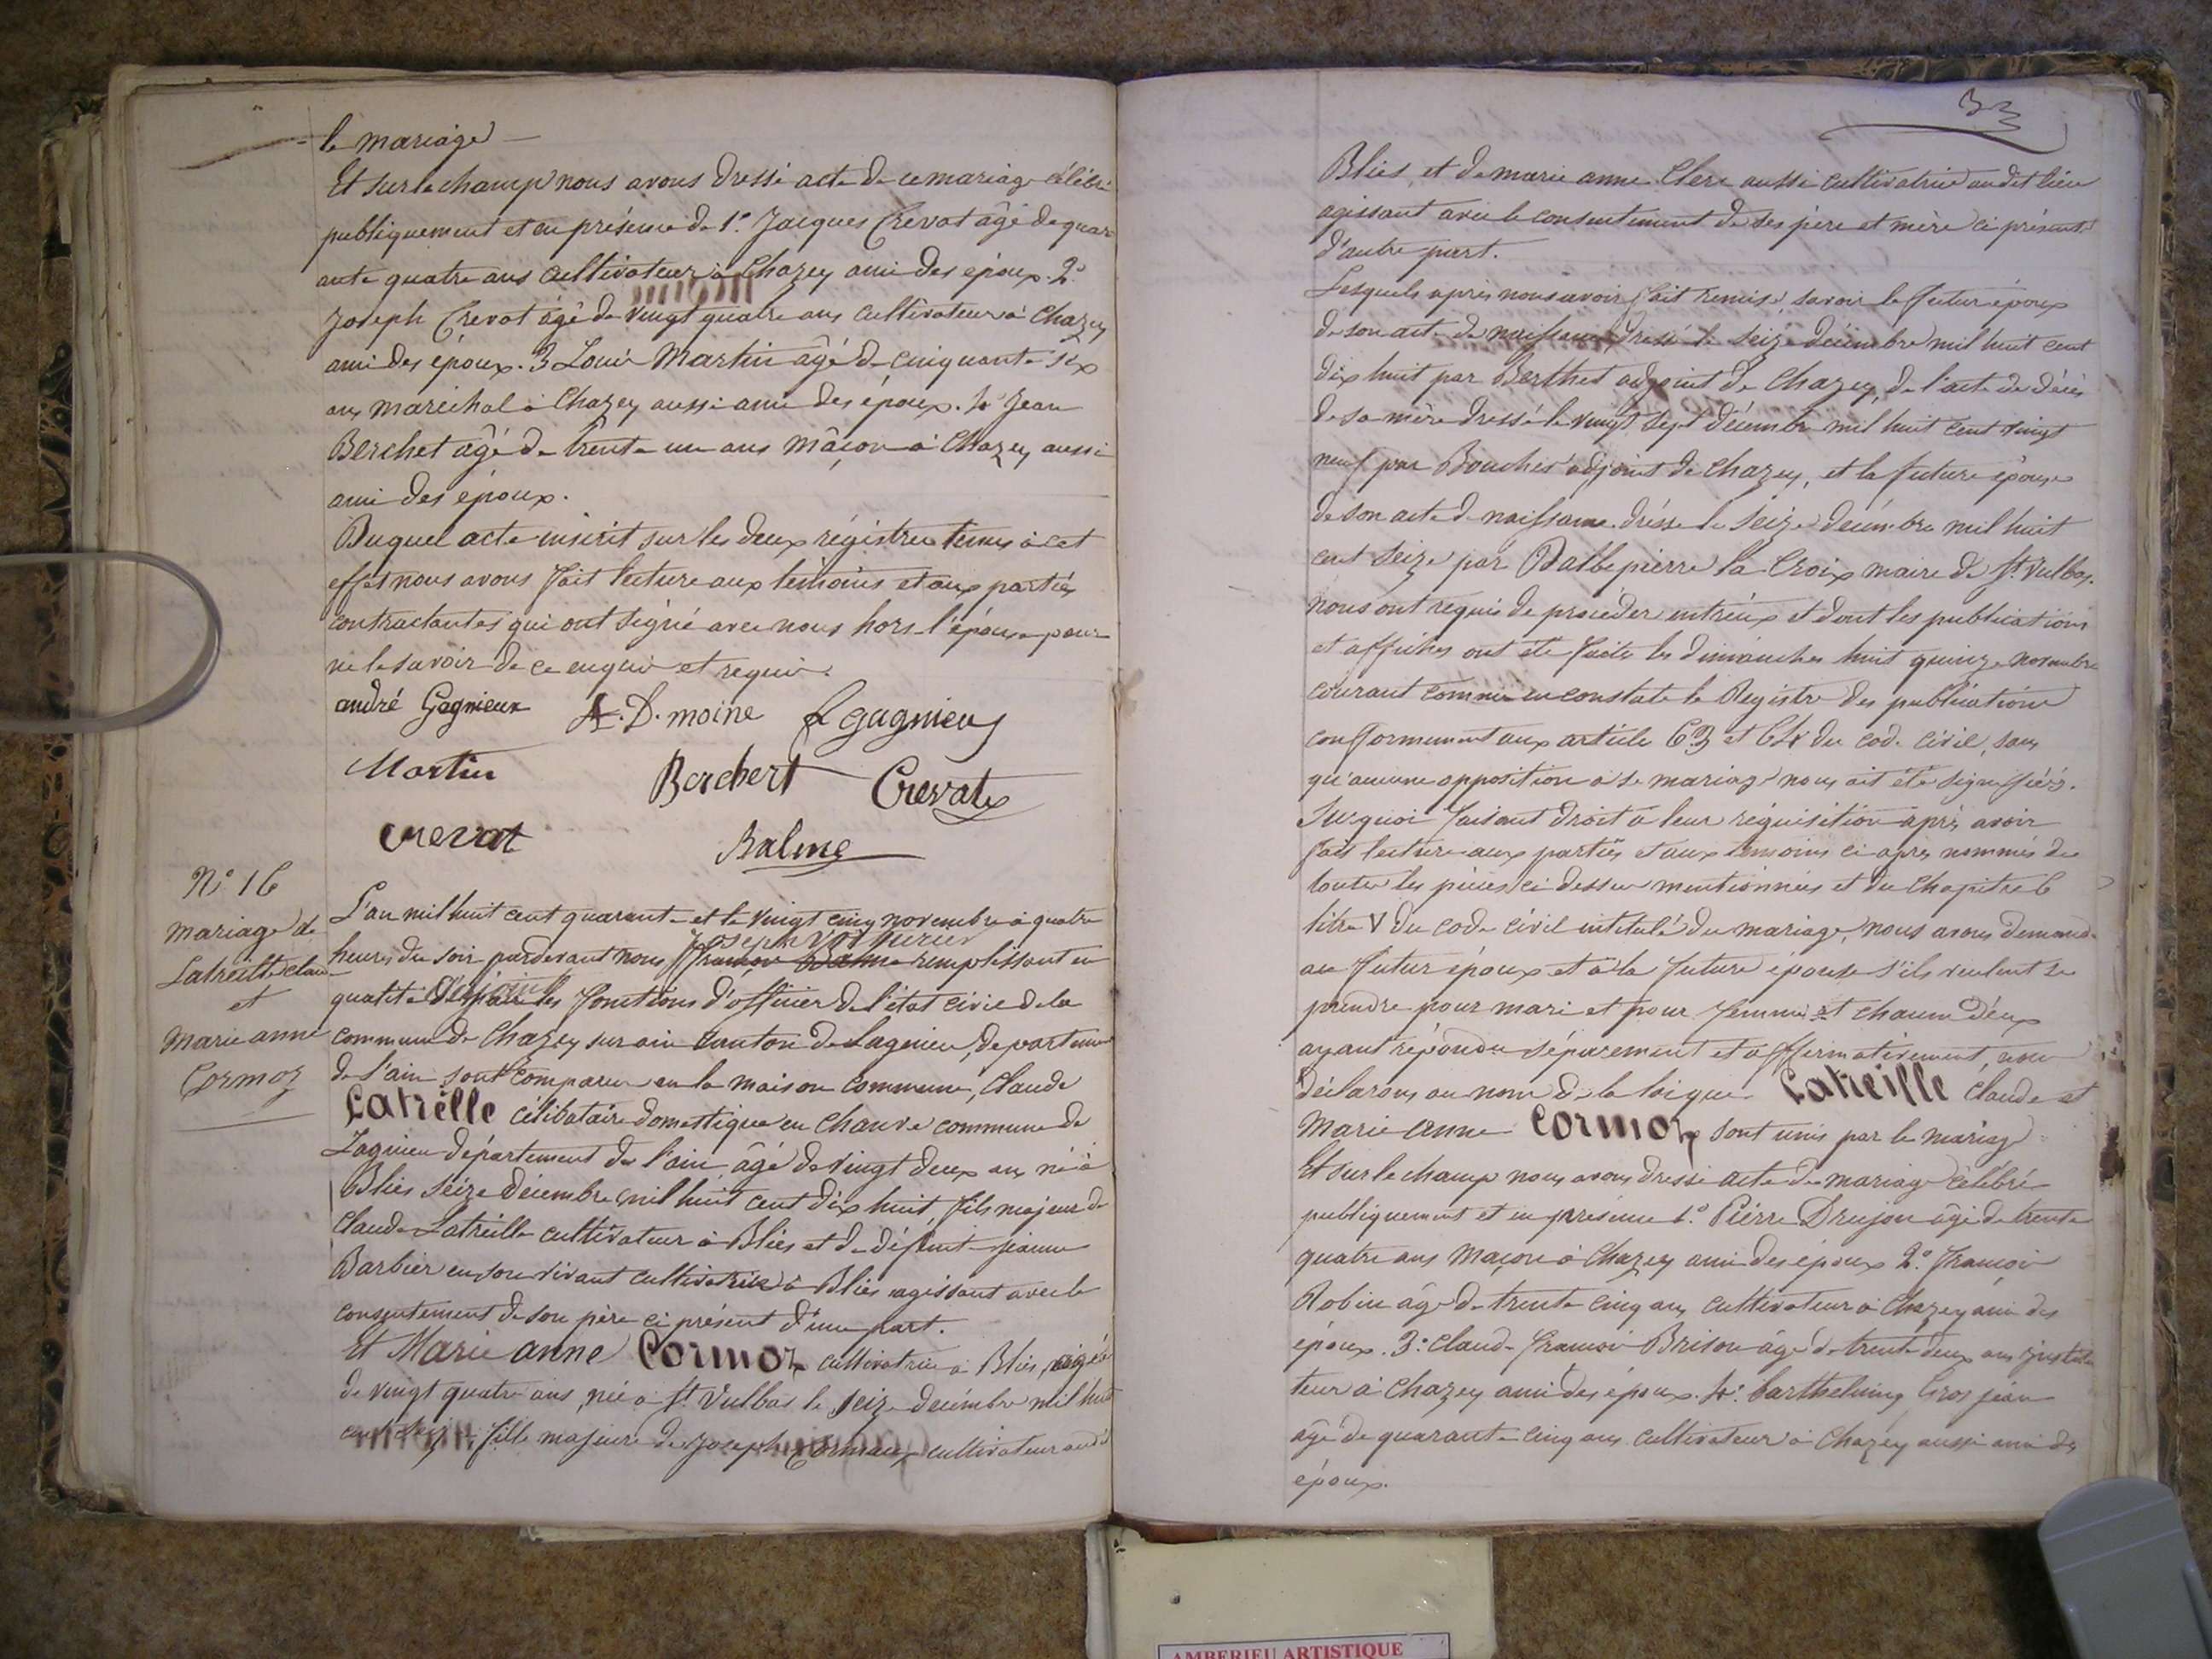 le mariage
Et sur le champ nous avons dressé acte de ce mariage célébré
publiquement et en présence de 1° Jacques Crevat âgé de quar
ante quatre ans cultivateur à Chazey ami des époux. 2°
Joseph Crevat âgé de vingt quatre ans cultivateur à Chazey
ami des époux. 3 Louis Martin âgé de cinquante six
ans maréchal à Chazey aussi ami des époux. 4° Jean
Berchet âgé de trente un ans mâçon à Chazey aussi
ami des époux.
Duquel acte inscrit sur les deux régistres tenus à cet
effet nous avons fait lecture aux témoins et aux parties
contractantes qui ont signé avec nous hors l'épouse pour
ne le savoir de ce enquis et requis.
andré Gagnieux A. D. moine L gagnieux
Martin Berchert Crevat
crevat Balme
N° 16
mariage de
Latreille claude
et
Marie anne
Cormoz
L'an mil huit cent quarante et le vingt cinq novembre à quatre
Joseph
heures du soir pardevant nous françois Balme remplissant en
adjoint
qualité les fonctions d'officier de l'état civil de la
commune de Chazey sur ain canton de Lagnieu, departement
de l'ain sont comparu en la maison commune, Claude
Latrelle célibataire domestique en Chanve commune de
Lagnieu département de l'ain âgé de vingt deux ans né à
Blies seize décembre mil huit cent dix huit, fils majeur de
Claude Latreille cultivateur à Blies et de défunt jeanne
Barbier en son vivant cultivatrice à Blies agissant avec le
consentement de son père ci présent d'une part.
Et Marie anne Cormoz cultivatrice à Blies, agée
de vingt quatre ans, née à St. Vulbas le seize decémbre mil huit
cent seize, fille majeure de Joseph Cormoux cultivateur audit
33
Blies, et de marie anne Clerc aussi cultivatrice audit lieu
agissant avec le consentement de ses père et mère ci présents
d'autre part.
Lesquels après nous avoir fait remise, savoir le futur époux
de son acte de naissance dressé le seize décémbre mil huit cent
dix huit par Berthet adjoint de Chazey, de l'acte de décès
de sa mère dressé le vingt sept décembre mil huit cent vingt
neuf par Bouches adjoint de Chazey, et la future épouse
de son acte de naissance dréssé le seize décémbre mil huit
cent seize par Balbe pierre la Croix maire de St. Vulbas.
nous ont requis de procéder entr'eux et dont les publications
et affiches ont été faites les dimanches huit quinze novembre
courant comme en constate le Registre des publications
conformement aux article 63 et 64 du code civil, sans
qu'aucune opposition à se mariage nous ait été signifiées.
Surquoi faisant droit à leur réquisition après avoir
fait lecture aux parties et aux temoins ci apres nommés de
toutes les pièces ci dessus mentionnées et du chapitre 6
titre V du code civil intitulé du mariage, nous avons demandé
au futur époux et à la future épouse s'ils veulent se
prendre pour mari et pour femme et chacun d'eux
ayant répondu séparement et affirmativement, nous
déclarons au nom de la loi que Latreille Claude et
Marie anne Cormoz sont unis par le mariage
Et sur le champ nous avons dressé acte de mariage célébré
publiquement et en présence 1° Piérre Drujon âgé de trente
quatre ans maçon à Chazey ami des époux 2° françois
Robin âgé de trente cinq ans, cultivateur à Chazey ami des
époux. 3° claude françois Brison âgé de trente deux ans institu
teur à Chazey ami des époux. 4° barthelémy Gros jean
âgé de quarante cinq ans cultivateur à Chazey aussi ami des
époux.
AMBERIEU ARTISTIQUE